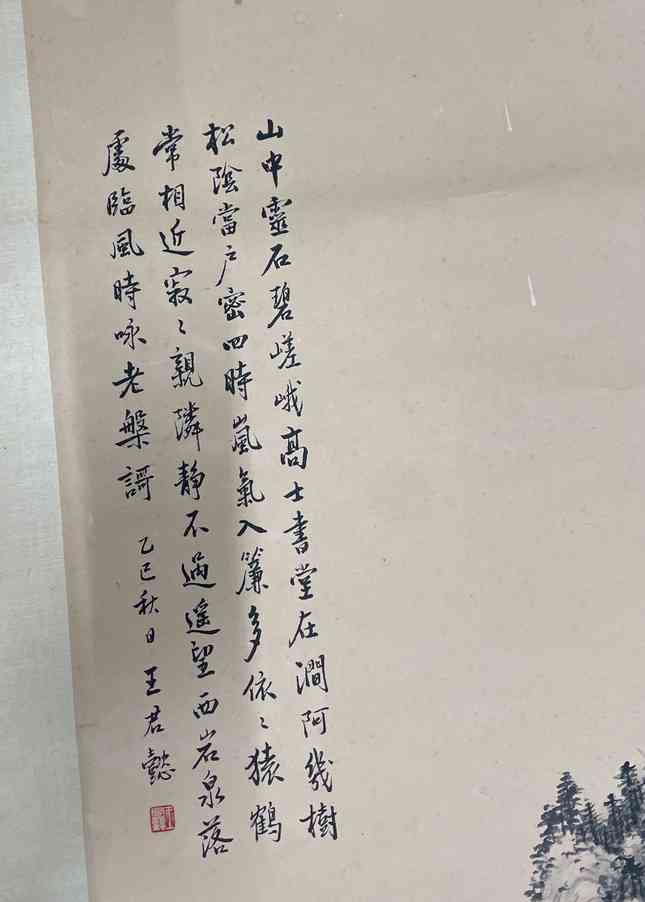 山中靈石碧嵯峨高士書堂在澗阿幾樹
松陰當户密四時嵐氣入簾多依〻猿鶴
常相近寂〻親隣静不過遥望西岩泉落
處臨風時咏老槃謌
乙巳秋日王君懿